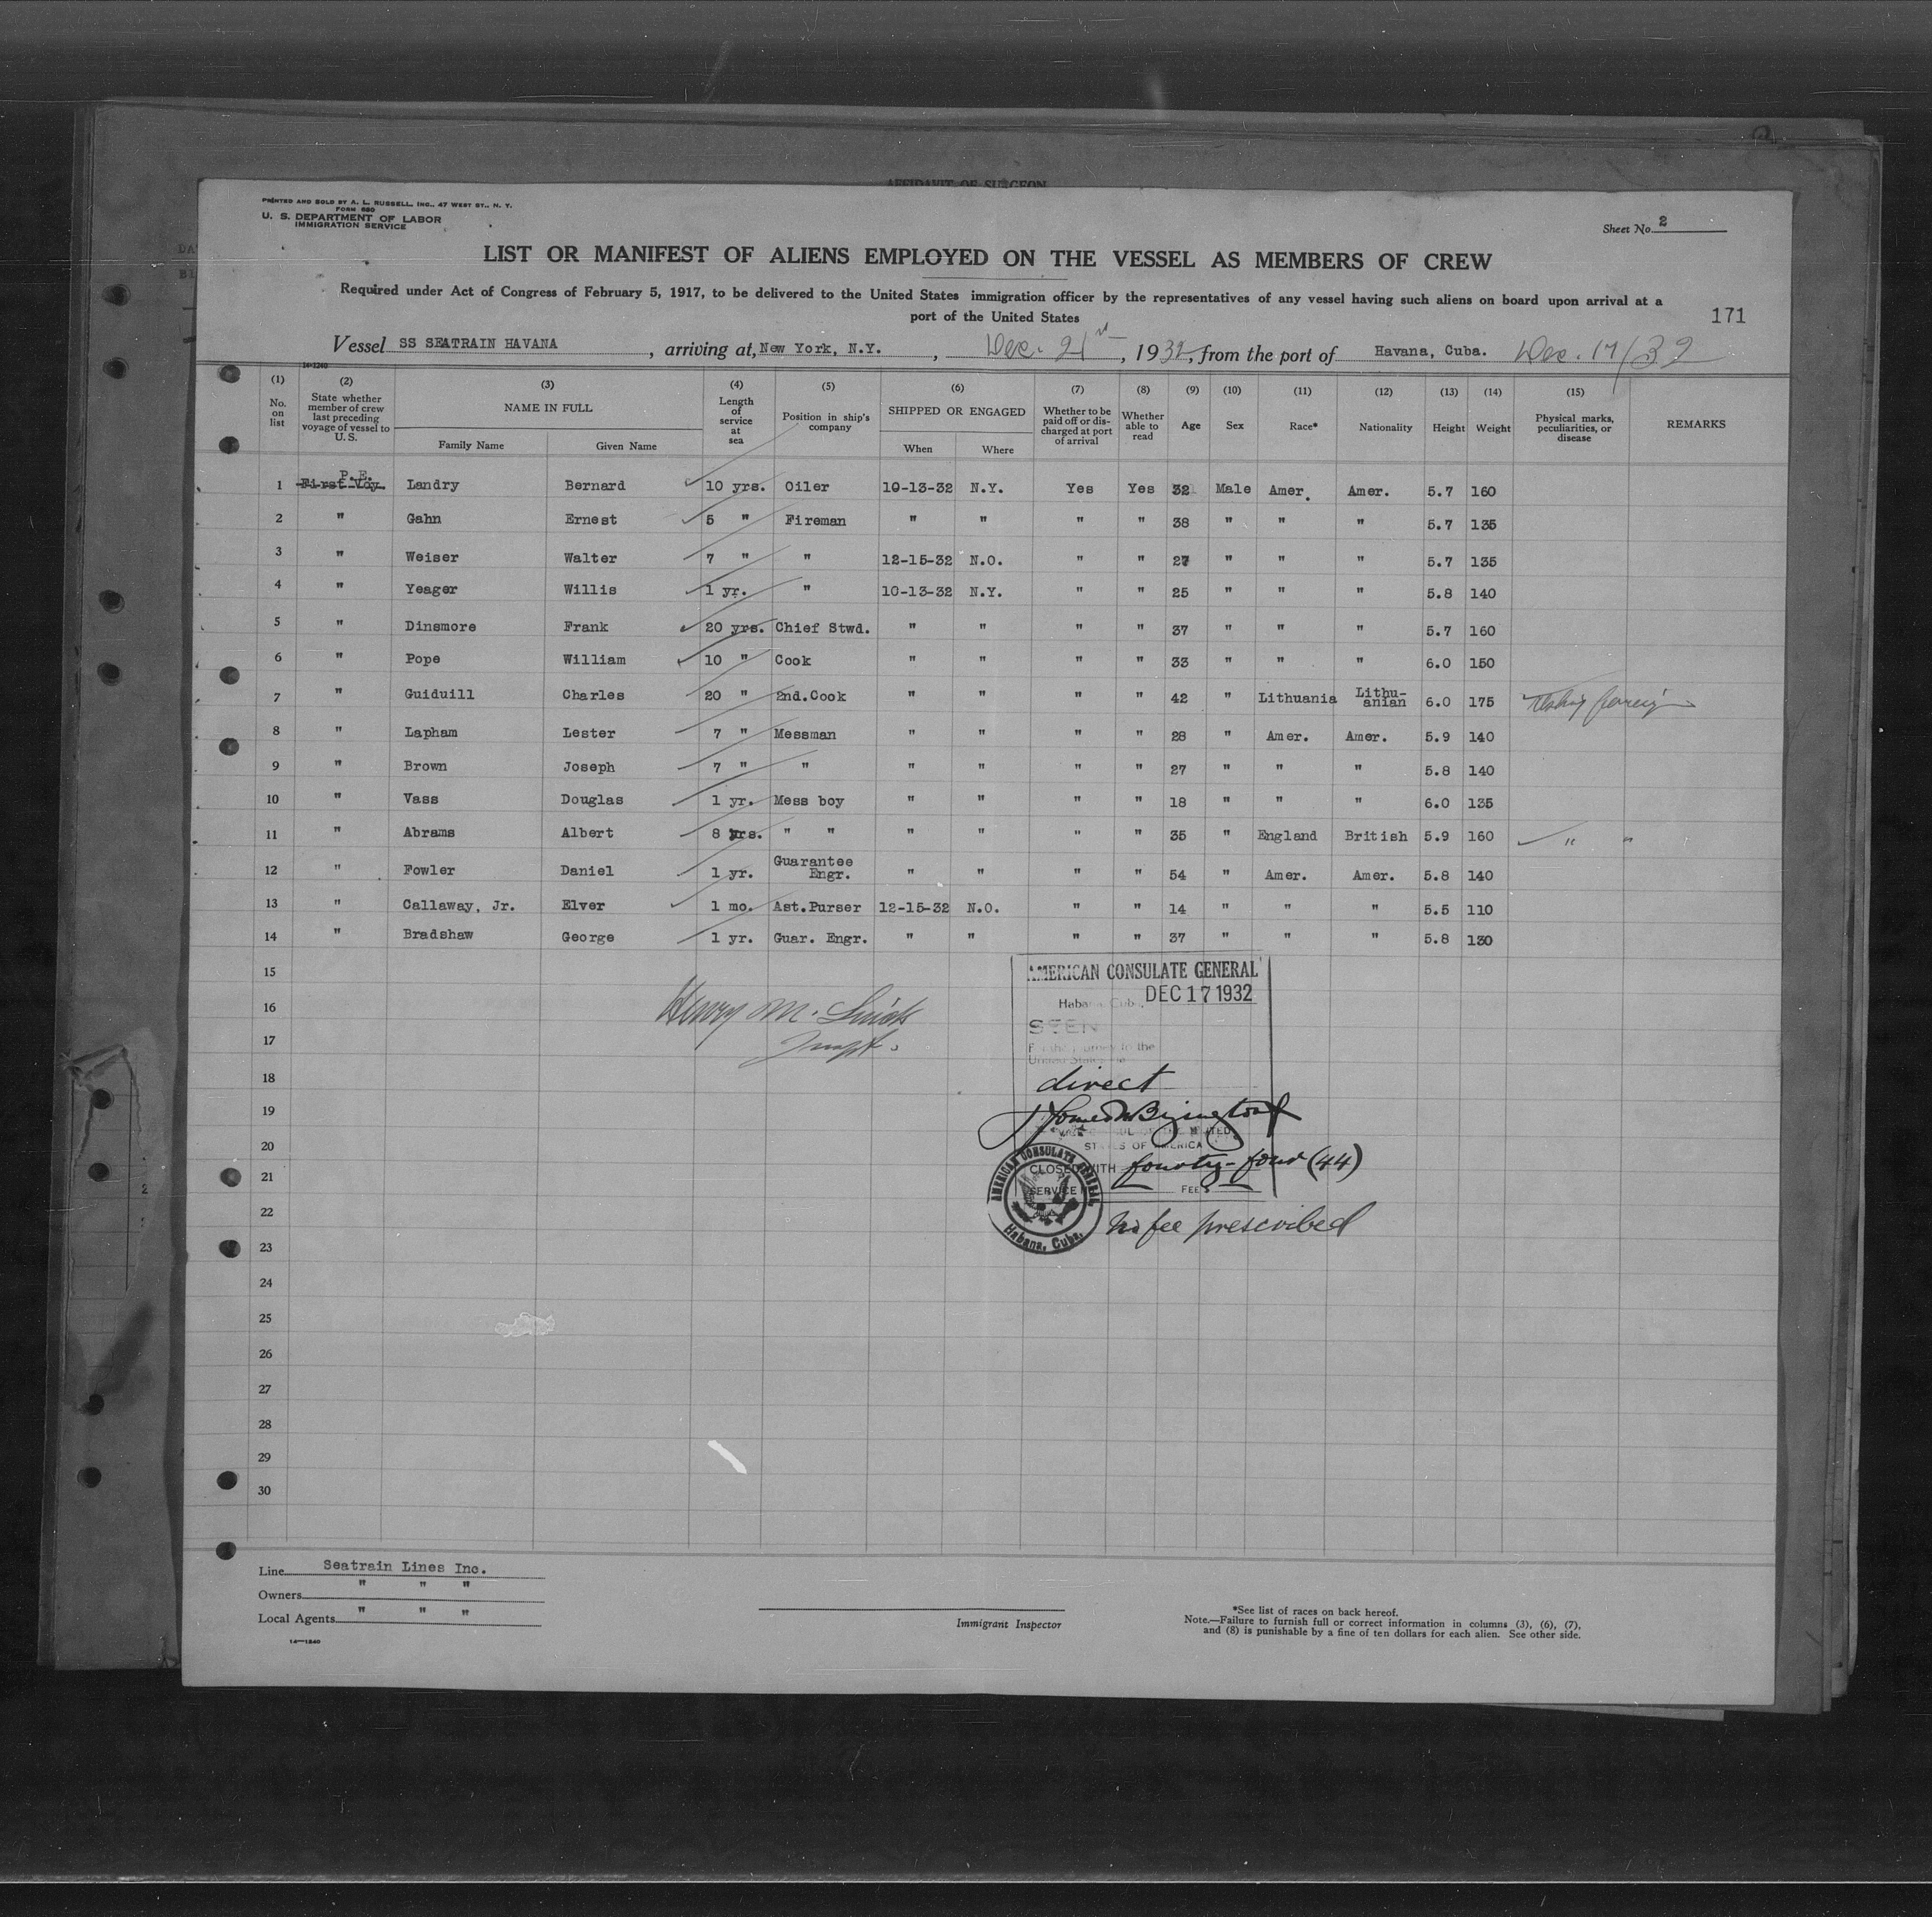 AFFIDAVIT OF SURGEON
PRINTED AND SOLD BY A. L. RUSSELL, INC., 47 WEST ST., N. Y.
FORM 680
U. S. DEPARTMENT OF LABOR
IMMIGRATION SERVICE
Sheet No. 2
LIST OR MANIFEST OF ALIENS EMPLOYED ON THE VESSEL AS MEMBERS OF CREW
Required under Act of Congress of February 5, 1917, to be delivered to the United States immigration officer by the representatives of any vessel having such aliens on board upon arrival at a
port of the United States
171
Vessel SS SEATRAIN HAVANA, arriving at, New York, N.Y., Dec. 21st, 1932, from the port of Havana, Cuba. Dec. 17/32
14-1240
(1) No. on list (2) State whether member of crew last preceding voyage of vessel to U.S. (3) NAME IN FULL Family Name Given Name (4) Length of service at sea (5) Position in ship's company (6) SHIPPED OR ENGAGED When Where (7) Whether to be paid off or discharged at port of arrival (8) Whether able to read (9) Age (10) Sex (11) Race* (12) Nationality (13) Height (14) Weight (15) Physical marks, peculiarities, or disease REMARKS
P.E.
1 First Voy. Landry Bernard 10 yrs. Oiler 10-13-32 N.Y. Yes Yes 32 Male Amer. Amer. 5.7 160
2 " Gahn Ernest 5 " Fireman " " " " 38 " " " 5.7 135
3 " Weiser Walter 7 " " 12-15-32 N.O. " " 27 " " " 5.7 135
4 " Yeager Willis 1 yr. " 10-13-32 N.Y. " " 25 " " " 5.8 140
5 " Dinsmore Frank 20 yrs. Chief Stwd. " " " " 37 " " " 5.7 160
6 " Pope William 10 " Cook " " " " 33 " " " 6.0 150
7 " Guiduill Charles 20 " 2nd.Cook " " " " 42 " Lithuania Lithu-anian 6.0 175
8 " Lapham Lester 7 " Messman " " " " 28 " Amer. Amer. 5.9 140
9 " Brown Joseph 7 " " " " " " 27 " " " 5.8 140
10 " Vass Douglas 1 yr. Mess boy " " " " 18 " " " 6.0 135
11 " Abrams Albert 8 yrs. " " " " " " 35 " England British 5.9 160 " "
12 " Fowler Daniel 1 yr. Guarantee Engr. " " " " 54 " Amer. Amer. 5.8 140
13 " Callaway, Jr. Elver 1 mo. Ast.Purser 12-15-32 N.O. " " 14 " " " 5.5 110
14 " Bradshaw George 1 yr. Guar. Engr. " " " " 37 " " " 5.8 130
15
16
17
18
19
20
21
22
23
24
25
26
27
28
29
30
Henry M.
AMERICAN CONSULATE GENERAL
Habana, Cuba. DEC 17 1932
SEEN
For the journey to the
United States
direct
CONSUL OF THE UNITED
STATES OF AMERICA
CLOSED WITH fourty-four (44)
SERVICE FEE
no fee prescribed
AMERICAN CONSULATE GENERAL
Habana, Cuba.
Line Seatrain Lines Inc.
Owners " " "
Local Agents " " "
14-1240
Immigrant Inspector
*See list of races on back hereof.
Note.—Failure to furnish full or correct information in columns (3), (6), (7),
and (8) is punishable by a fine of ten dollars for each alien. See other side.